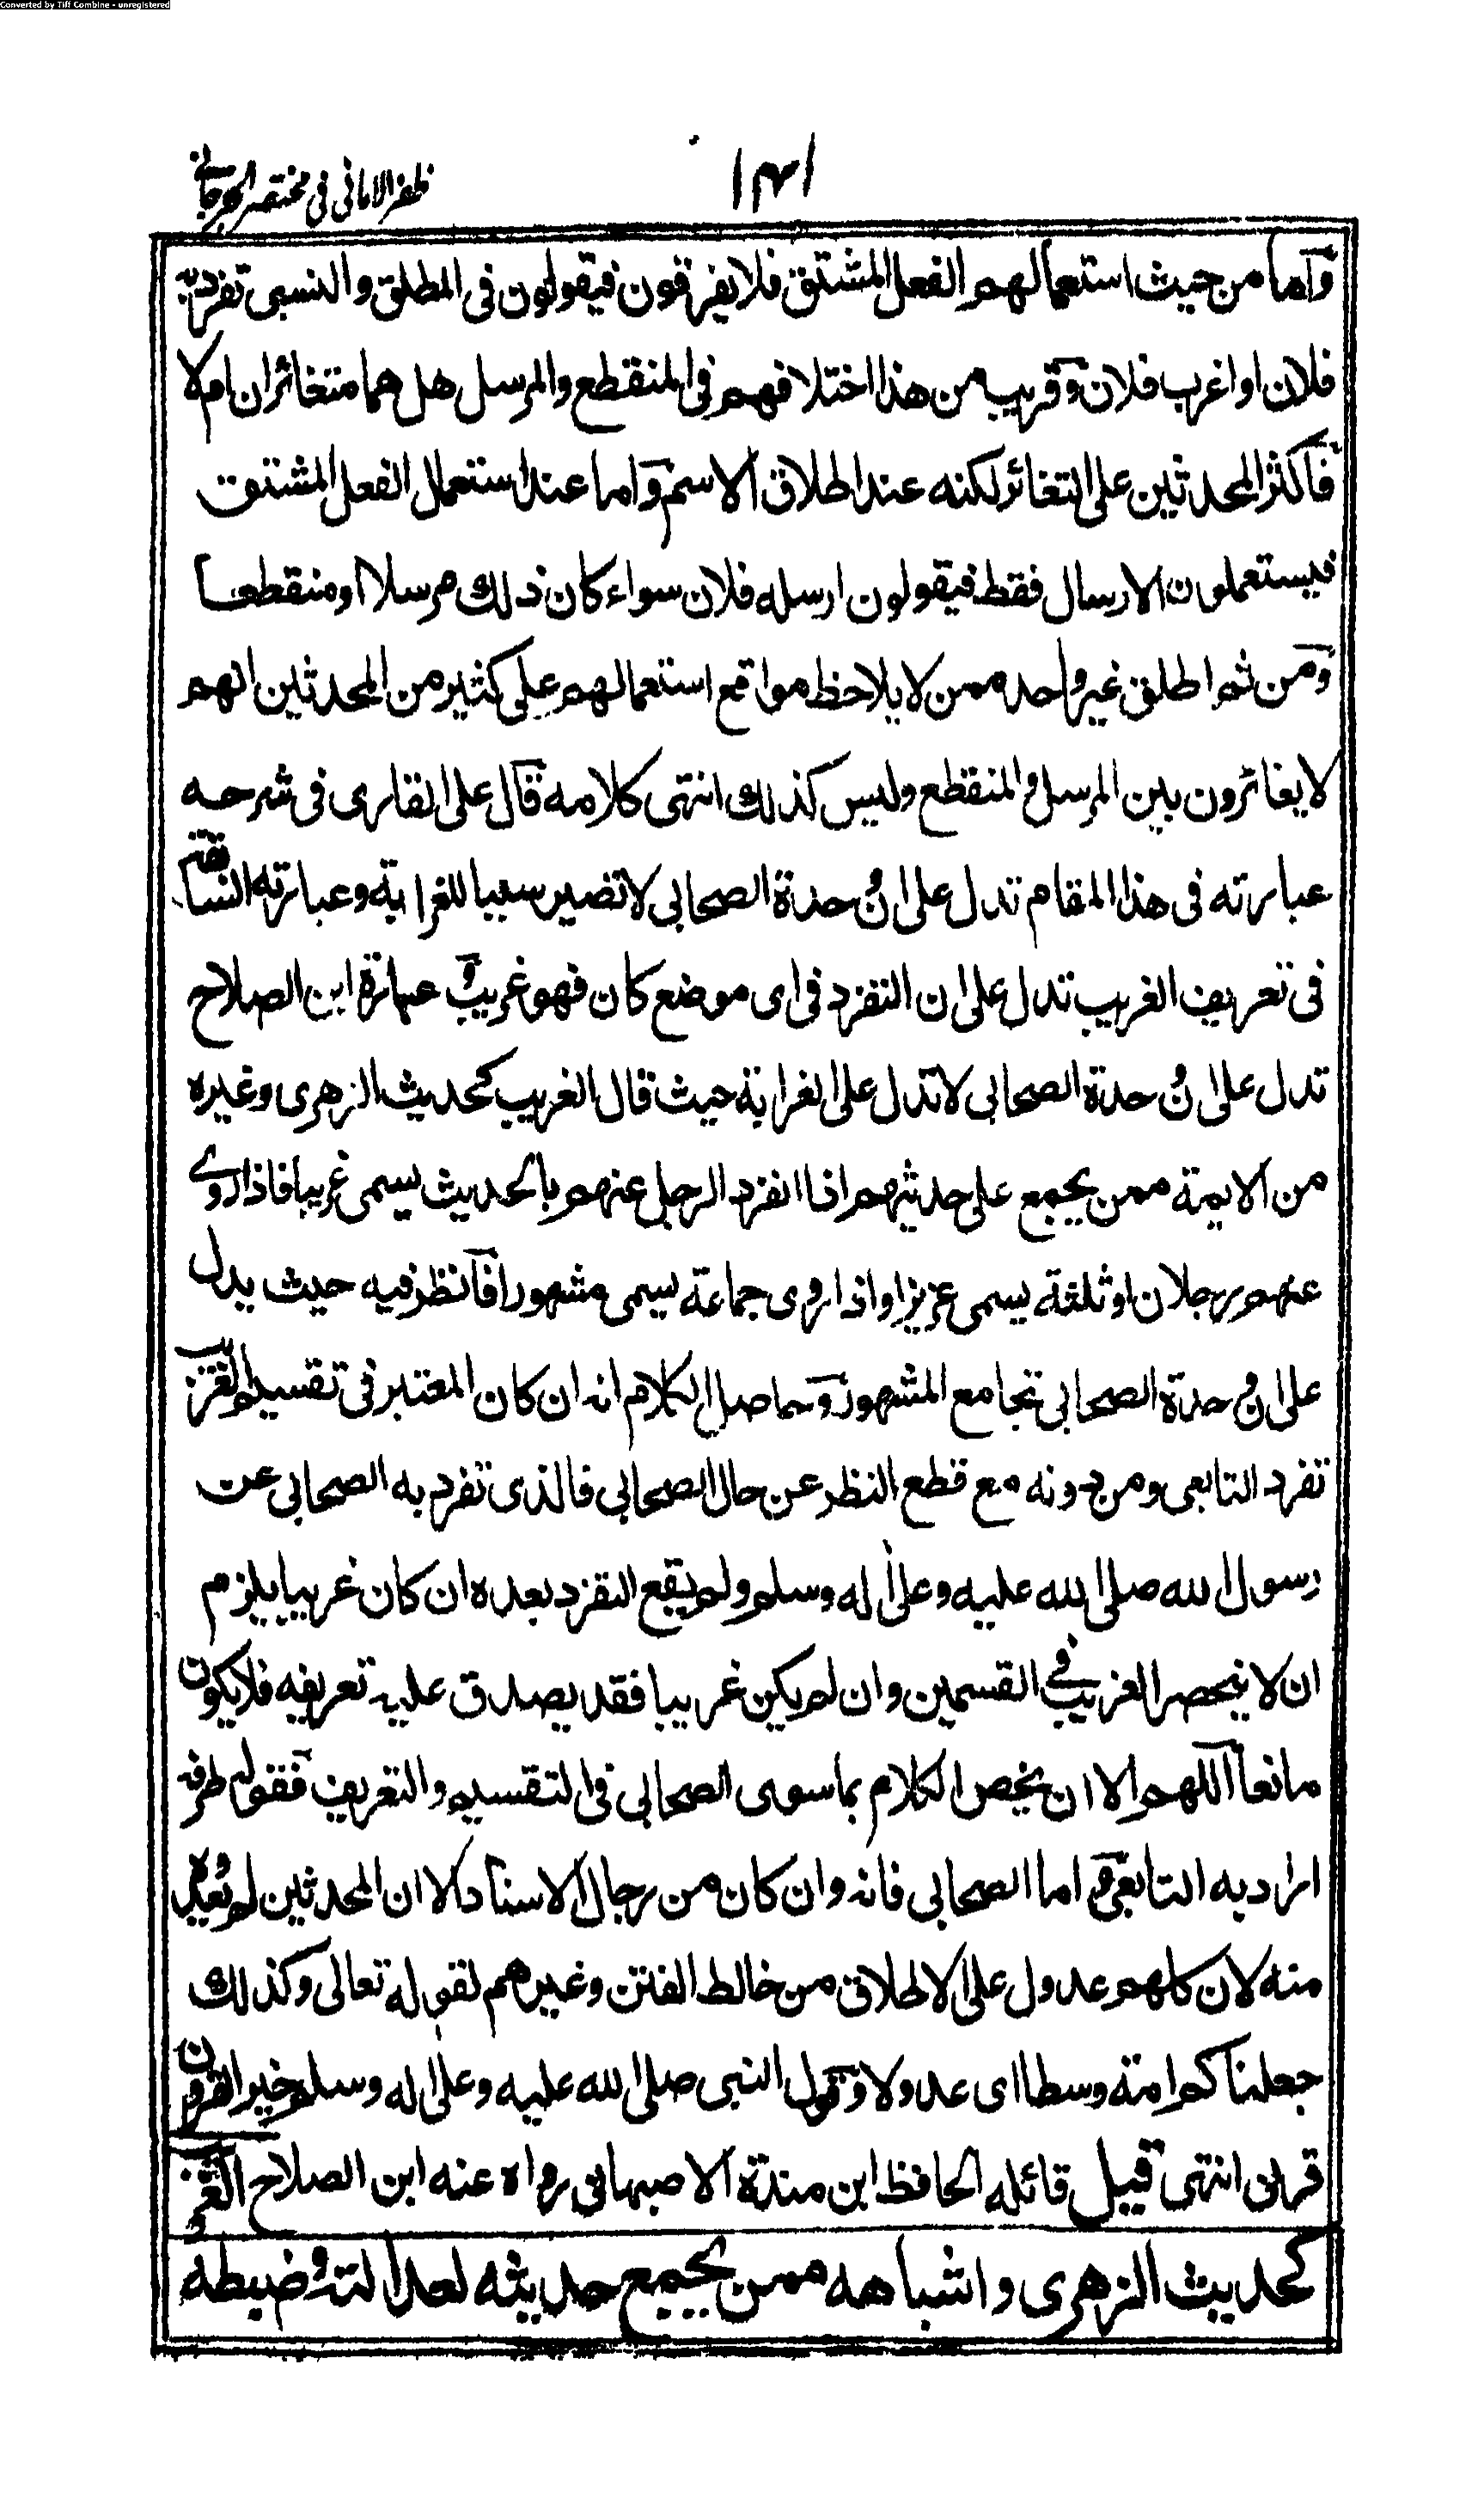 Converted by Tiff Combine - unregistered
ظفر الاماني في مختصر الجرجاني
۱۴۱
وآما من حيث استعمالهم الفعل المشتق فلا يفرقون فيقولون في المطلق والنسبي تفرد به
فلان او اغرب فلان وقريب من هذا اختلافهم في المنقطع والمرسل هل هما متغائران ام لا
فاكثر المحدثين على التغائر لكنه عند اطلاق الاسم واما عند استعمال الفعل المشتق
فيستعملون الارسال فقط فيقولون ارسله فلان سواء كان ذلك مرسلا او منقطعا
ومن ثم اطلق غير واحد ممن لا يلاحظ مواقع استعمالهم على كثير من المحدثين انهم
لا يغائرون بين المرسل والمنقطع وليس كذلك انتهى كلامه قال على القارى في شرحه
عبارته في هذا المقام تدل على انّ وحدة الصحابي لا تضير سببا للغرابة وعبارته السابقة
في تعريف الغريب تدل على ان التفرد في اى موضع كان فهو غريب وعبارة ابن الصلاح
تدل على انّ وحدة الصحابي لا تدل على الغرابة حيث قال الغريب كحديث الزهرى وغيره
من الايمة ممن يجمع على حديثهم اذا انفرد الرجل عنهم بالحديث يسمى غريبا فاذا روى
عنهم رجلان او ثلثة يسمى عزيزا واذا روى جماعة يسمى مشهورا فانظر فيه حيث يدل
على انّ وحدة الصحابي تجامع المشهور وحاصل الكلام انه ان كان المعتبر في تقسيم الغريب
تفرد التابعى ومن دونه مع قطع النظر عن حال الصحابي فالذى تفرد به الصحابي عن
رسول الله صلى الله عليه وعلى اله وسلم ولم يقع التفرد بعده ان كان غريبا يلزم
ان لا ينحصر الغريب في القسمين وان لم يكن غريبا فقد يصدق عليه تعريفه فلا يكون
مانعا اللهم الا ان يخص الكلام بما سوى الصحابي في التقسيم والتعريف فقوله طرفه
اراد به التابعي واما الصحابي فانه وان كان من رجال الاسناد الا ان المحدثين لم يعدوه
منه لان كلهم عدول على الاطلاق من خالط الفتن وغيرهم لقوله تعالى وكذلك
جعلناكم امة وسطا اى عدولا وقول النبي صلى الله عليه وعلى اله وسلم خير القرون
قرنى انتهى قيل قائله الحافظ ابن مندة الاصبهانى رواه عنه ابن الصلاح الغريب
كحديث الزهرى واشباهه ممن يجمع حديثه لعدالته وضبطه